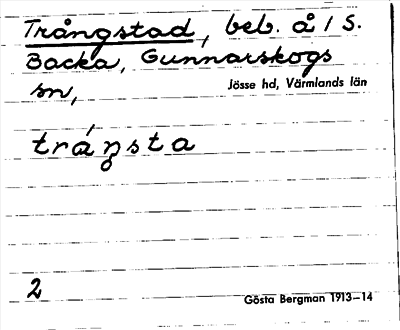 Trångstad, beb. å 1 S.
Backa, Gunnarskogs
sn,
Jösse hd, Värmlands län
trá̊ŋsta
2
Gösta Bergman 1913–14